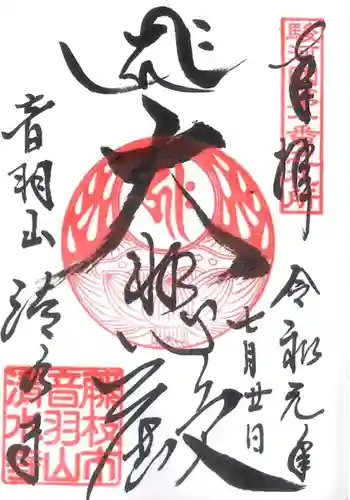 奉拝
令和元年
七月廿日
大悲殿
音羽山
清水寺
藤枝市
音羽山
清水寺